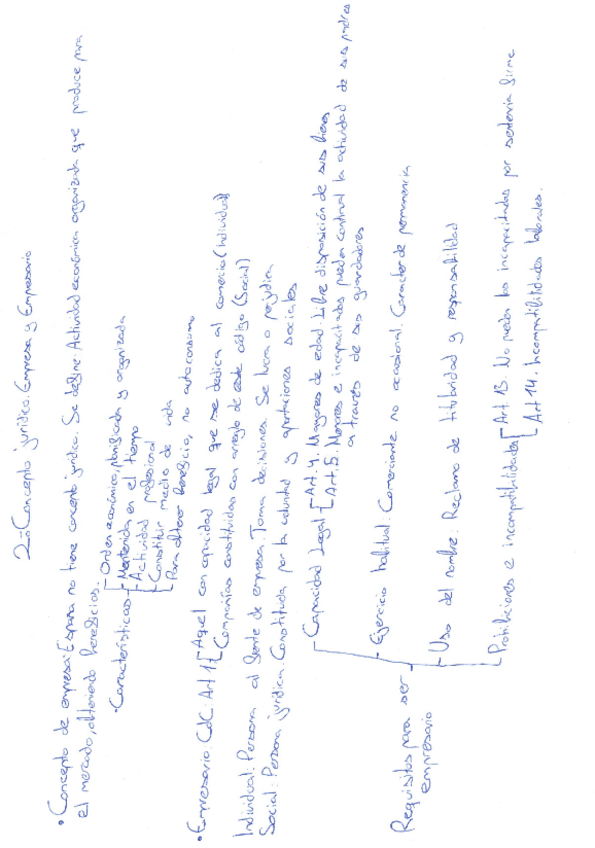 2-Concepto jurídico. Empresa y Empresario
• Concepto de empresa: España no tiene concepto jurídico. Se define: Actividad económica organizada que produce para
el mercado, obteniendo beneficios.
• Características
Orden económico, planificada y organizada
Mantenida en el tiempo
Actividad profesional
Constituir medio de vida
Para obtener beneficio, no autoconsumo
• Empresario: CdC: Art 1
Aquel con capacidad legal que se dedica al comercio (Individual)
Compañías constituidas con arreglo de este código (Social)
Individual: Persona al frente de empresa. Toma decisiones. Se lucra o perjudica
Social: Persona jurídica. Constituida por la voluntad y aportaciones sociales
Requisitos para ser
empresario
Capacidad Legal
Art. 4. Mayores de edad. Libre disposición de sus bienes
Art. 5. Menores e incapacitados pueden continuar la actividad de sus padres
a través de sus guardadores
Ejercicio habitual: Comerciante no ocasional. Caracter de permanencia
Uso del nombre: Reclamo de titularidad y responsabilidad
Prohibiciones e incompatibilidades
Art. 13. No pueden los incapacitados por sentencia firme
Art 14. Incompatibilidades laborales.